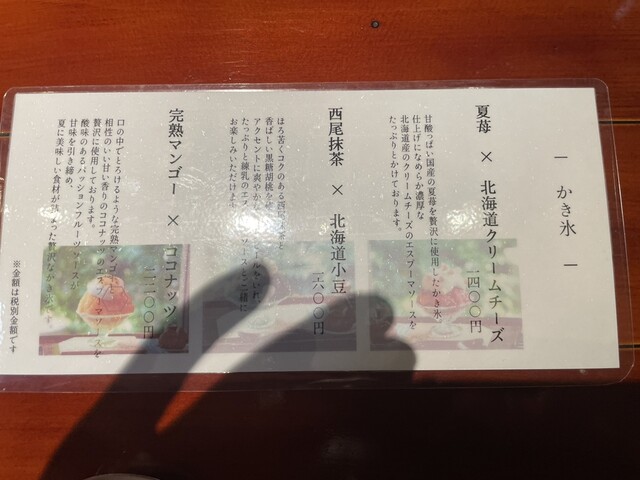 ― かき氷 ―
夏苺 × 北海道クリームチーズ
一四〇〇円
甘酸っぱい国産の夏苺を贅沢に使用したかき氷
仕上げになめらか濃厚な
北海道産のクリームチーズのエスプーマソースを
たっぷりとかけております。
西尾抹茶 × 北海道小豆
一六〇〇円
ほろ苦いコクのある西尾抹茶と
香ばしい黒糖胡桃を
アクセントに爽やか
たっぷりと練乳のエスプーマソースと一緒に
お楽しみいただけます
完熟マンゴー × ココナッツ
二二〇〇円
口の中でとろけるような完熟マンゴーと
相性のいい甘い香りのココナッツのエスプーマソースを
贅沢に使用しております。
酸味のあるパッションフルーツソースが
甘味を引き締め、
夏に美味しい食材が詰まった贅沢なかき氷です
※金額は税別金額です